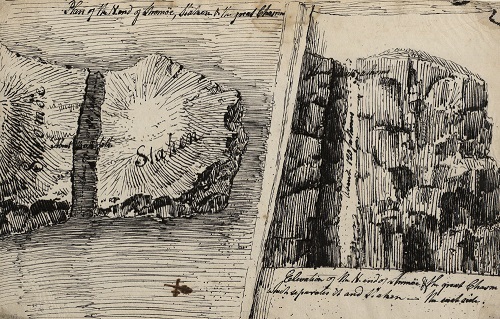 Plan of the N. end of Stromöe, Staken & the great Chasm
Stromöe
Staken
Elevation of the N. end of Stromöe & the great Chasm
which separates it and Staken — the east side.